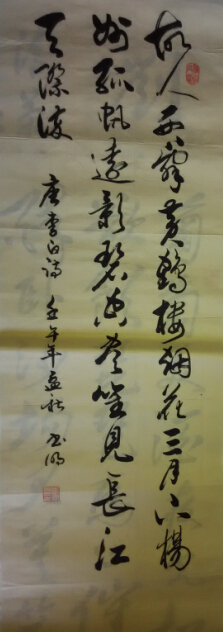 故人西辭黄鶴樓烟花三月下楊
州孤帆遠影碧空盡唯見長江
天際流
唐李白詩 壬午年孟秋